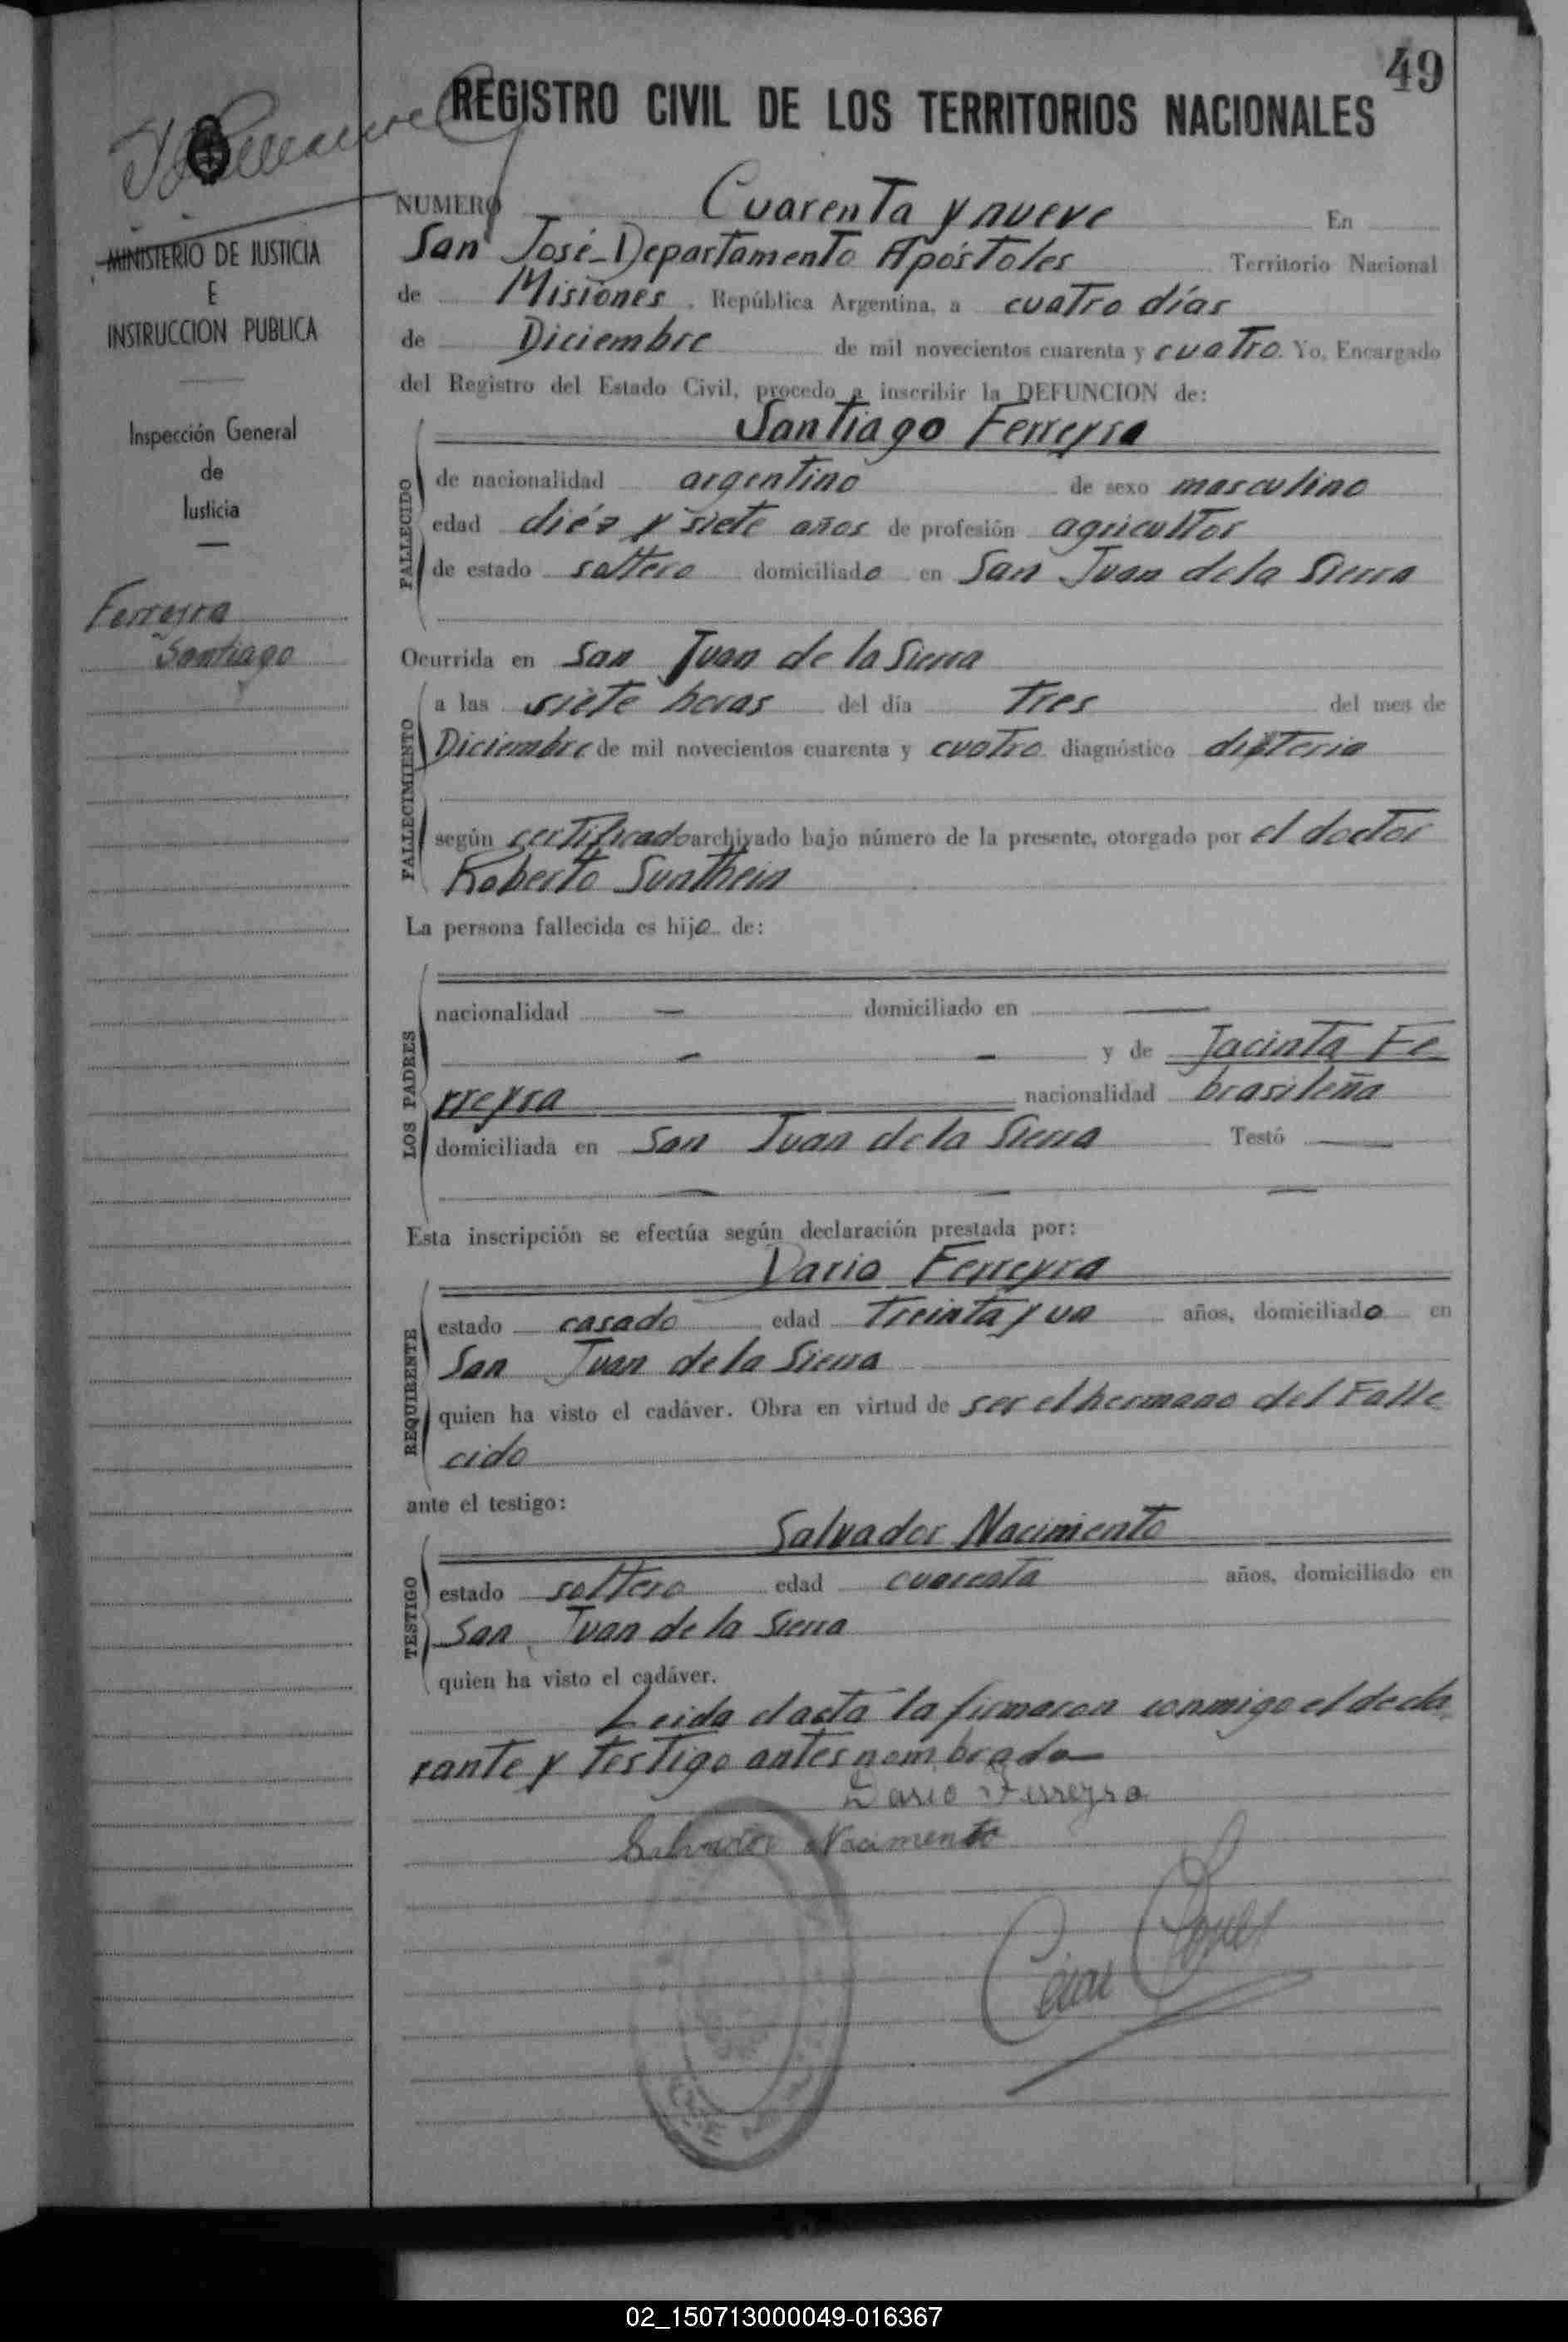 49
REGISTRO CIVIL DE LOS TERRITORIOS NACIONALES
MINISTERIO DE JUSTICIA
E
INSTRUCCION PUBLICA
Inspección General
de
Justicia
Ferreyra
Santiago
NUMERO Cuarenta y nueve En
San José - Departamento Apóstoles Territorio Nacional
de Misiones, República Argentina, a cuatro días
de Diciembre de mil novecientos cuarenta y cuatro. Yo, Encargado
del Registro del Estado Civil, procedo a inscribir la DEFUNCION de:
Santiago Ferreyra
FALLECIDO
de nacionalidad argentino de sexo masculino
edad diéz y siete años de profesión agricultor
de estado soltero domiciliado en San Juan de la Sierra
Ocurrida en San Juan de la Sierra
FALLECIMIENTO
a las siete horas del día tres del mes de
Diciembre de mil novecientos cuarenta y cuatro diagnóstico difteria
según certificado archivado bajo número de la presente, otorgado por el doctor
Roberto
La persona fallecida es hijo de:
LOS PADRES
nacionalidad — domiciliado en —
— — y de Jacinta Fe
rreyra nacionalidad brasileña
domiciliada en San Juan de la Sierra Testó —
— — —
Esta inscripción se efectúa según declaración prestada por:
Dario Ferreyra
REQUIRENTE
estado casado edad treinta y un años, domiciliado en
San Juan de la Sierra
quien ha visto el cadáver. Obra en virtud de ser el hermano del Falle
cido
ante el testigo:
Salvador Nacimiento
TESTIGO
estado soltero edad cuarenta años, domiciliado en
San Juan de la Sierra
quien ha visto el cadáver.
Leida el acta la firmaron conmigo el decla
rante y testigo antes nombrado
Dario Ferreyra
Salvador Nacimento
02_150713000049-016367